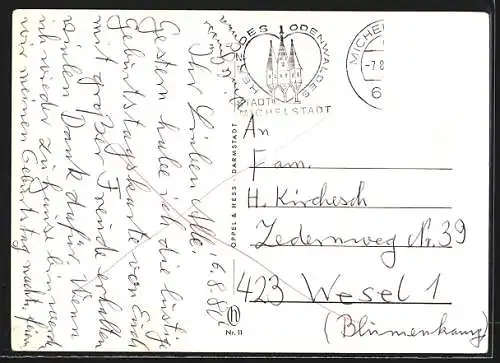 HERZ DES ODENWALDES
STADT
MICHELSTADT
MICHEL
-7.8
6
Ihr Lieben Alle! 6.8.80
Gestern habe ich die lustige
Geburtstagskarte von Euch
mit großer Freude erhalten
vielen Dank dafür. Wenn
ich wieder zu Hause bin werde
wir meinen Geburtstag nach feiern
OPPEL & HESS · DARMSTADT
Nr. 11
An
Fam.
H. Kirchesch
Zedernweg Nr. 39
423 Wesel 1
(Blumenkamp)